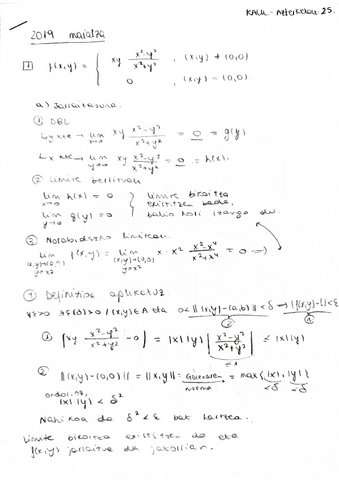 KALK.- Azterketak 25.
2019 maiatza
1 f(x,y) = { xy (x²-y²)/(x²+y²) , (x,y) ≠ (0,0)
0 , (x,y) = (0,0)
a) Jarraitasuna.
① DBL
↳ y kte → lim x→0 xy (x²-y²)/(x²+y²) = 0 = g(y)
↳ x kte → lim y→0 xy (x²-y²)/(x²+y²) = 0 = h(x).
② Limite berrituak
lim x→0 h(x) = 0 } limite bikoitza
existitzen bada,
lim y→0 g(y) = 0 } balio hori izango du
③ Norabidezko limiteak.
lim (x,y)→(0,0) y=x² f(x,y) = lim (x,y)→(0,0) y=x² x·x² (x²-x⁴)/(x²+x⁴) = 0 ⇒
④ Definizioa aplikatuz.
∀ε>0 ∃δ(ε)>0 / (x,y)∈A eta 0<||(x,y)-(a,b)||<δ → |f(x,y)-l|<ε
① |xy (x²-y²)/(x²+y²) - 0| = |x||y| |(x²-y²)/(x²+y²)| ≤ |x||y|
≤1
② ||(x,y)-(0,0)|| = ||x,y|| = Goienaren norma = max{|x|,|y|}
<δ <δ
ondorioz,
|x||y| < δ²
Nahikoa da δ² < ε bat hartzea.
Limite bikoitza existitzen da eta
f(x,y) jarraitua da jatorrian.